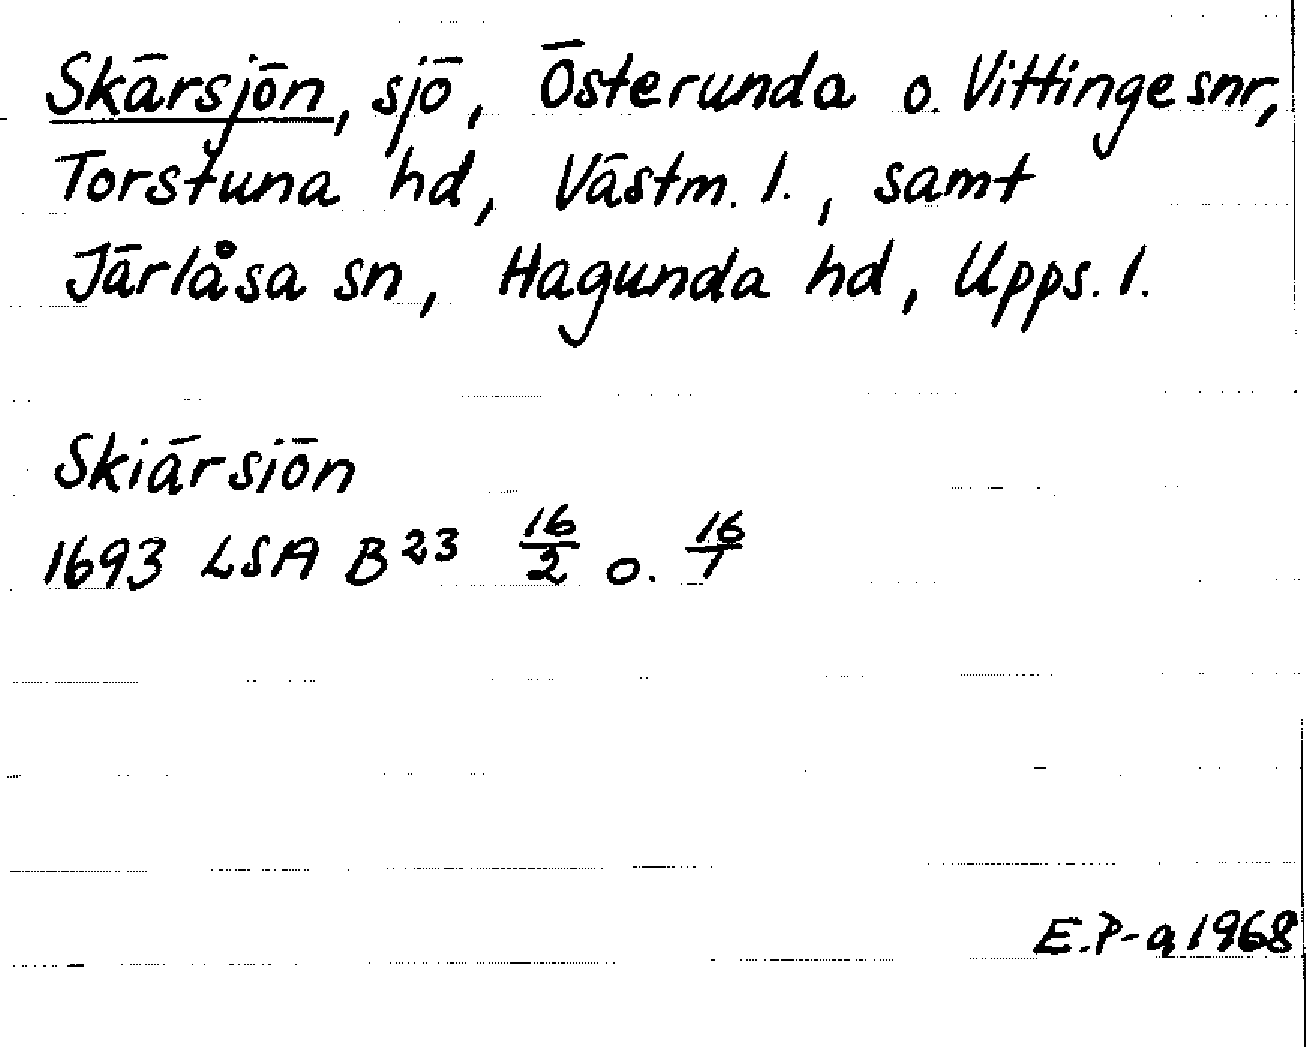 Skärsjön, sjö, Österunda o. Vittinge snr,
Torstuna hd, Västm. l., samt
Järlåsa sn, Hagunda hd, Upps. l.
Skiärsiön
1693 LSA B²³ 16/2 o. 16/1
E.P-a 1968